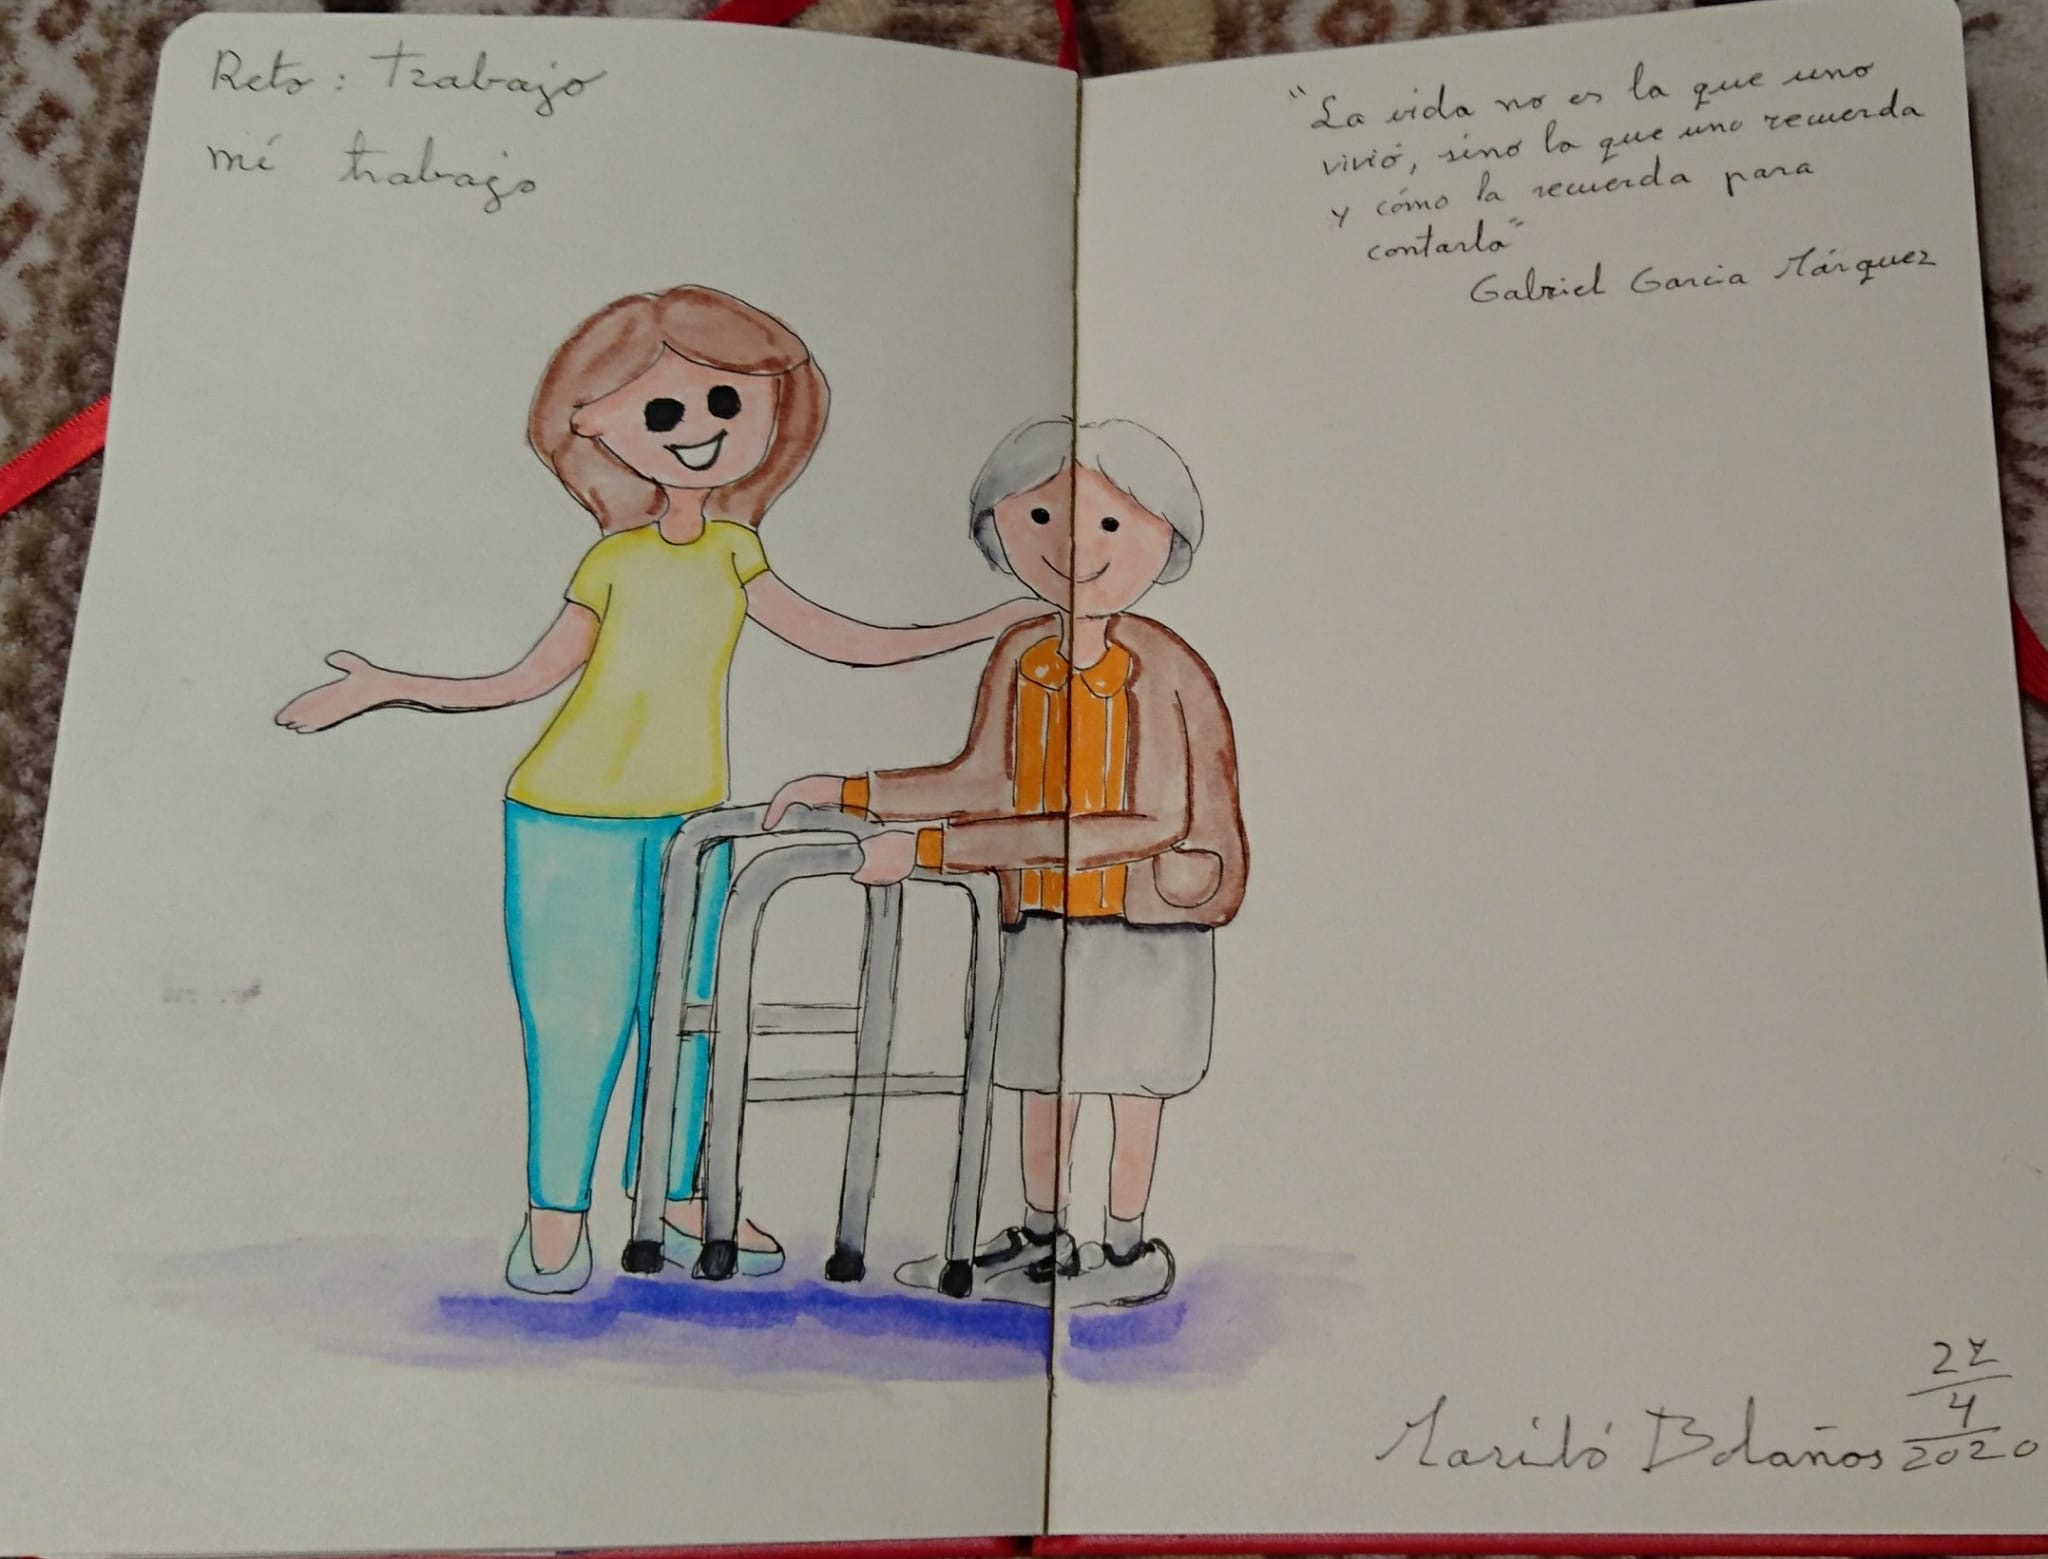 Reto: Trabajo
mi trabajo
"La vida no es la que uno
vivió, sino la que uno recuerda
y cómo la recuerda para
contarla"
Gabriel Garcia Márquez
27
4
2020
Mariló Bolaños